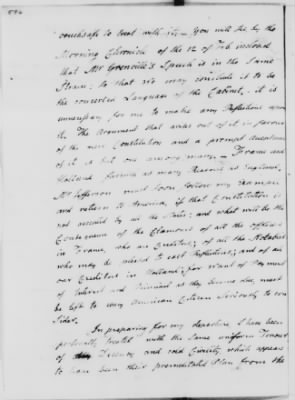 vouchsafe to treat with us. — You will see, by the
Morning Chronicle of the 12 of Feb. inclosed
that Mr Grenville's Speech is in the Same
Strain: so that we may conclude it to be
the concerted Language of the Cabinet. it is
unnecessary for me to make any Reflections upon
it. The Argument that arises out of it in favour
of the new Constitution and a prompt Acceptance
of it is but one among many. — France and
Holland furnish as many Reasons as England.
Mr Jefferson must soon follow my Example
and return to America, if that Constitution is
not accepted by all the States: and what will be the
Consequence of the Clamours of all the officers
in France, who are Creditors; of all the Notables
who may be pleased to cast Reflections; and of all
our Creditors in Holland, for want of Payment
of Interest and Principal as they become due, must
be left to every American Citizen Seriously to con
Sider.
In preparing for my departure, I have been
personally treated with the Same uniform Tenour
of dry Decency and cold Civility, which appears
to have been their premeditated Plan from the